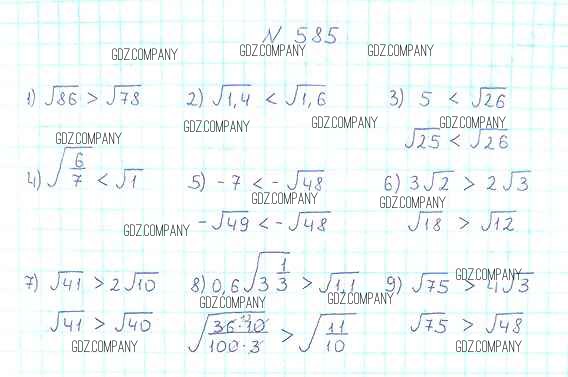 N 585
GDZ.COMPANY GDZ.COMPANY GDZ.COMPANY
1) √86 > √78 2) √1,4 < √1,6 3) 5 < √26
GDZ.COMPANY GDZ.COMPANY GDZ.COMPANY
GDZ.COMPANY √25 < √26
4) √(6/7) < √1 5) -7 < -√48 6) 3√2 > 2√3
GDZ.COMPANY GDZ.COMPANY
GDZ.COMPANY -√49 < -√48 √18 > √12
7) √41 > 2√10 8) 0,6√(3 1/3) > √1,1 9) √75 > 4√3
GDZ.COMPANY GDZ.COMPANY GDZ.COMPANY
√41 > √40 √(36·10/100·3) > √(11/10) √75 > √48
GDZ.COMPANY GDZ.COMPANY